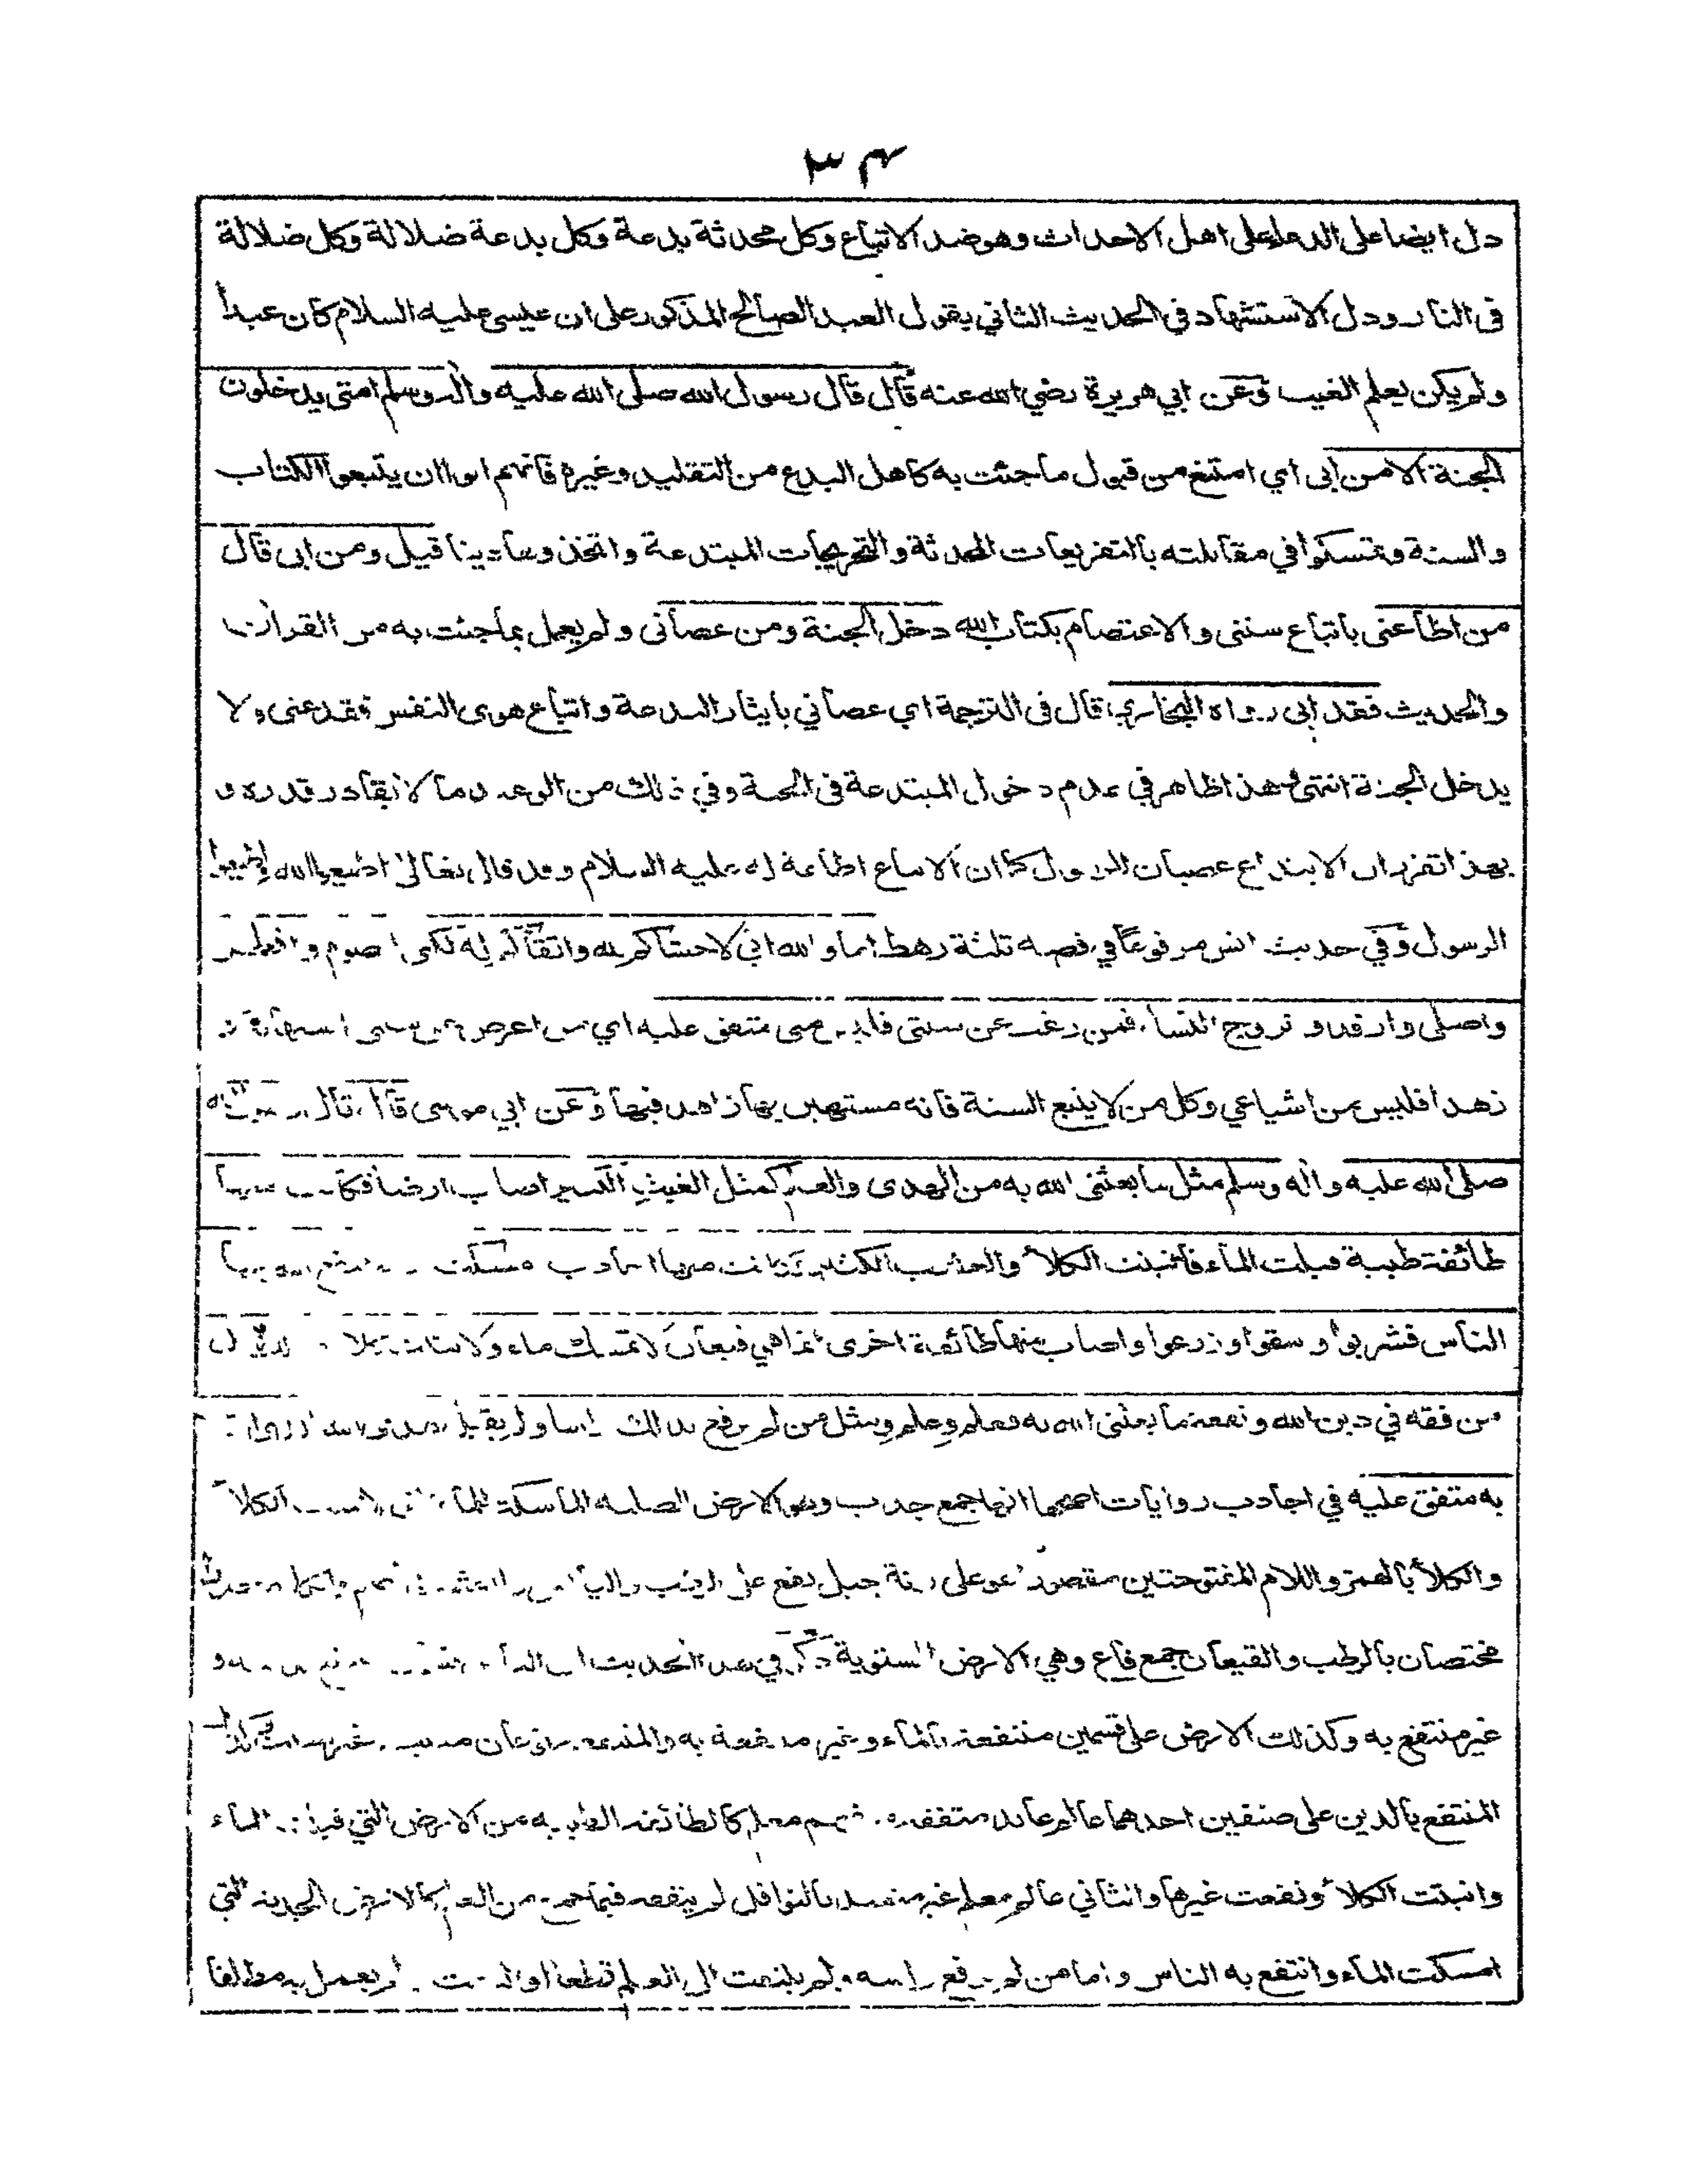 ٣٤
دل ايضا على الدعاء على اهل الاحداث وهو ضد الاتباع وكل محدثة بدعة وكل بدعة ضلالة وكل ضلالة
فى النار ودل الاستشهاد في الحديث الثاني بقول العبد الصالح المذكور على ان عيسى عليه السلام كان عبدا
ولم يكن يعلم الغيب وعن ابي هريرة رضي الله عنه قال قال رسول الله صلى الله عليه واله وسلم امتى يدخلون
الجنة الا من ابى اي امتنع من قبول ما جئت به كاهل البدع من التقليد وغيره فانهم ابوا ان يتبعوا الكتاب
والسنة وتمسكوا في مقابلته بالتفريعات المحدثة والتخريجات المبتدعة واتخذوها دينا قيل ومن ابى قال
من اطاعنى باتباع سنتى والاعتصام بكتاب الله دخل الجنة ومن عصانى ولم يعمل بما جئت به من القران
والحديث فقد ابى رواه البخاري قال فى الترجمة اي عصاني بايثار البدعة واتباع هوى النفس فقد عنى ولا
يدخل الجنة انتهى وهذا ظاهر في عدم دخول المبتدعة فى الجنة وفي ذلك من الوعيد ما لا يقادر قدره و
بهذا تقرر ان الابتداع عصيان الرسول كما ان الاتباع اطاعة له عليه السلام وقد قال تعالى اطيعوا الله واطيعوا
الرسول وفي حديث انس مرفوعا في قصة ثلثة رهط اما والله اني لاخشاكم لله واتقاكم له لكنى اصوم وافطر
واصلى وارقد وتزوج النساء فمن رغب عن سنتى فليس منى متفق عليه اي من اعرض عن سنتى استهانة
زهدا فليس من اشياعي وكل من لا يتبع السنة فانه مستهين بها زاهد فيها وعن ابي موسى قال قال رسول الله
صلى الله عليه واله وسلم مثل ما بعثنى الله به من الهدى والعلم كمثل الغيث الكثير اصاب ارضا فكانت منها
طائفة طيبة قبلت الماء فانبتت الكلأ والعشب الكثير وكانت منها اجادب امسكت الماء فنفع الله بها
الناس فشربوا وسقوا وزرعوا واصاب منها طائفة اخرى انما هي قيعان لا تمسك ماء ولا تنبت كلا فذلك مثل
من فقه في دين الله ونفعه ما بعثنى الله به فعلم وعلم ومثل من لم يرفع بذلك راسا ولم يقبل هدى الله الذي ارسلت
به متفق عليه في اجادب روايات اصحها انها جمع جدب وهو الارض الصلبة الماسكة للماء التي لا تنبت الكلأ
والكلأ بالهمز واللام المفتوحتين مقصورا هو على زنة جبل يقع على الرطب واليابس
مختصان بالرطب والقيعان جمع قاع وهي الارض المستوية ذكر في هذا الحديث
غير منتفع به وكذلك الارض على قسمين منتفعة بالماء وغير منتفعة به والمنتفعة نوعان
المنتفع بالدين على صنفين احدهما عالم عابد متفقه فهم معلم كالطائفة الطيبة من الارض التي قبلت الماء
وانبتت الكلأ ونفعت غيرها والثاني عالم معلم غير متعبد بالنوافل لم يتفقه فيما جمع من العلم كالارض الجدبة التي
امسكت الماء وانتفع به الناس واما من لم يرفع راسه ولم يلتفت الى العلم قطعا او لم يعمل به مطلقا